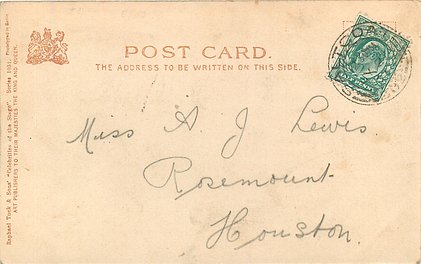 POST CARD.
THE ADDRESS TO BE WRITTEN ON THIS SIDE.
Miss A J Lewis
Rosemount
Houston.
Raphael Tuck & Sons' "Celebrities of the Stage". Series 1051.
ART PUBLISHERS TO THEIR MAJESTIES THE KING AND QUEEN.